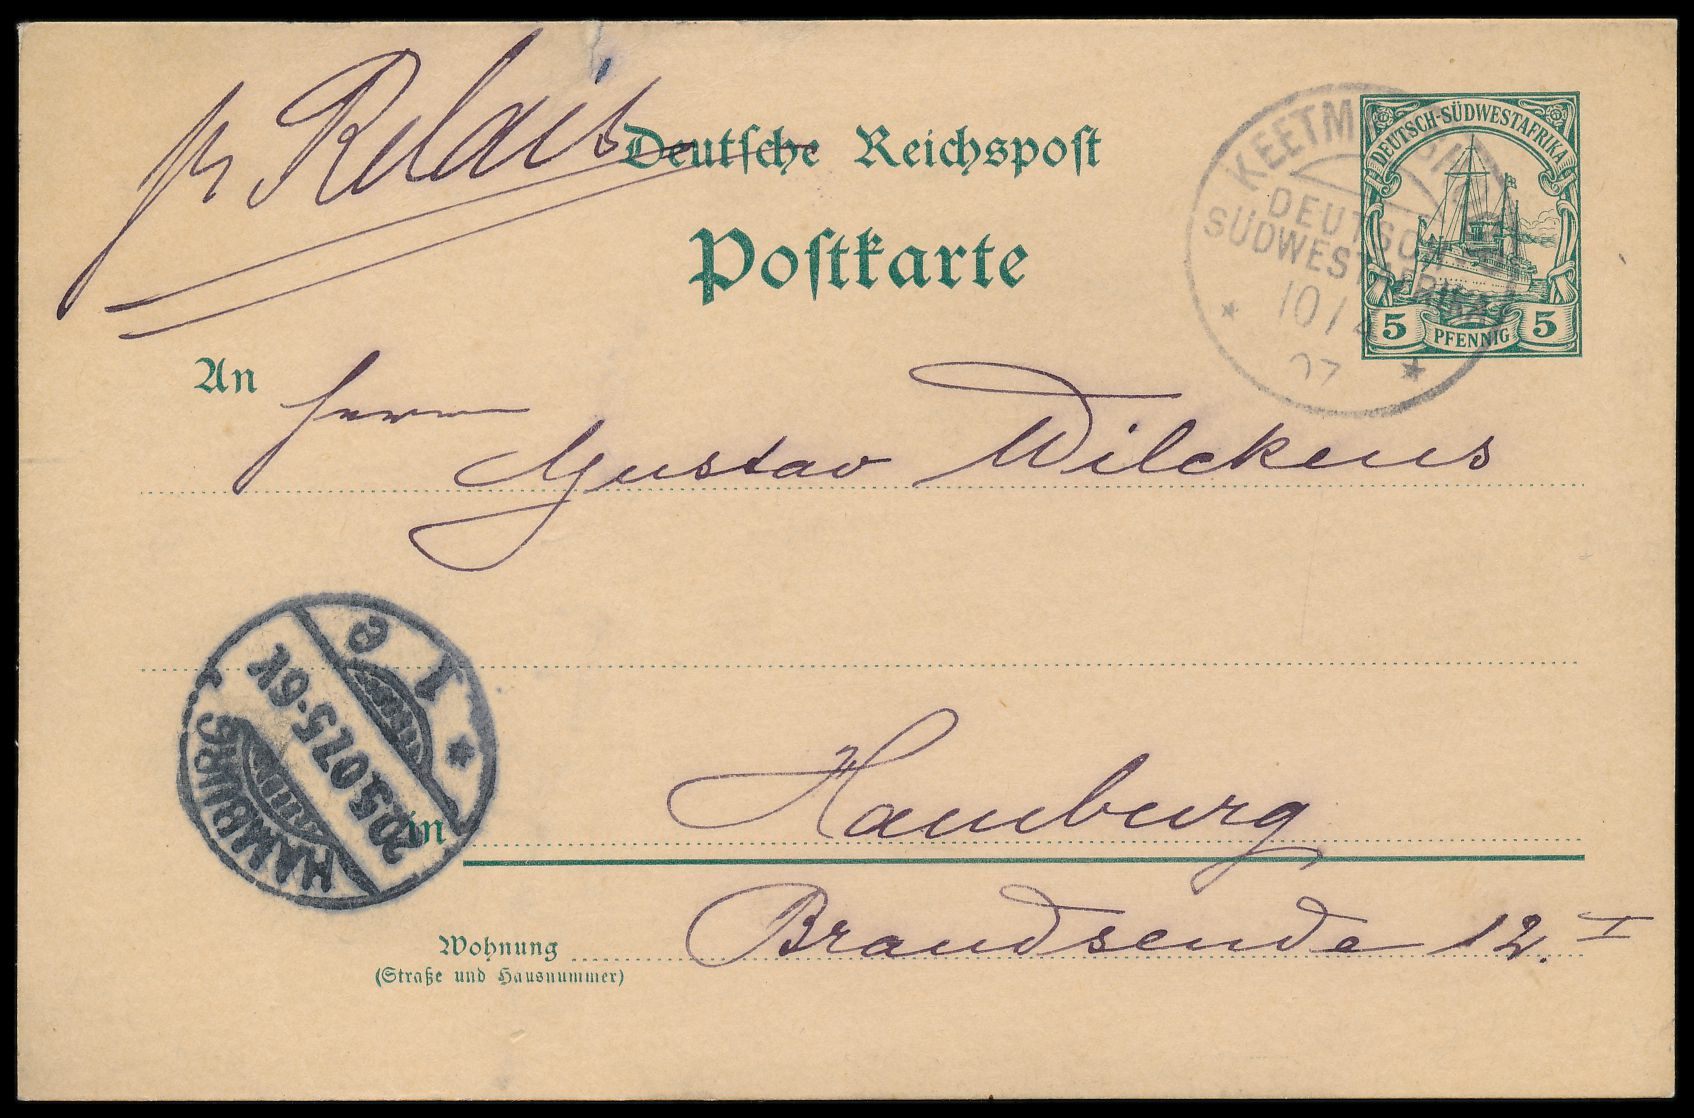 pr Relais
Deutsche Reichspost
Postkarte
KEETM
DEUTSCH
SÜDWESTAFRIKA
10/4
07
DEUTSCH-SÜDWESTAFRIKA
5 PFENNIG 5
An
Herrn
Gustav Wilckens
HAMBURG
20.5.07.5-6V.
1
e
in
Hamburg
Wohnung
(Straße und Hausnummer)
Brandsende 12. I